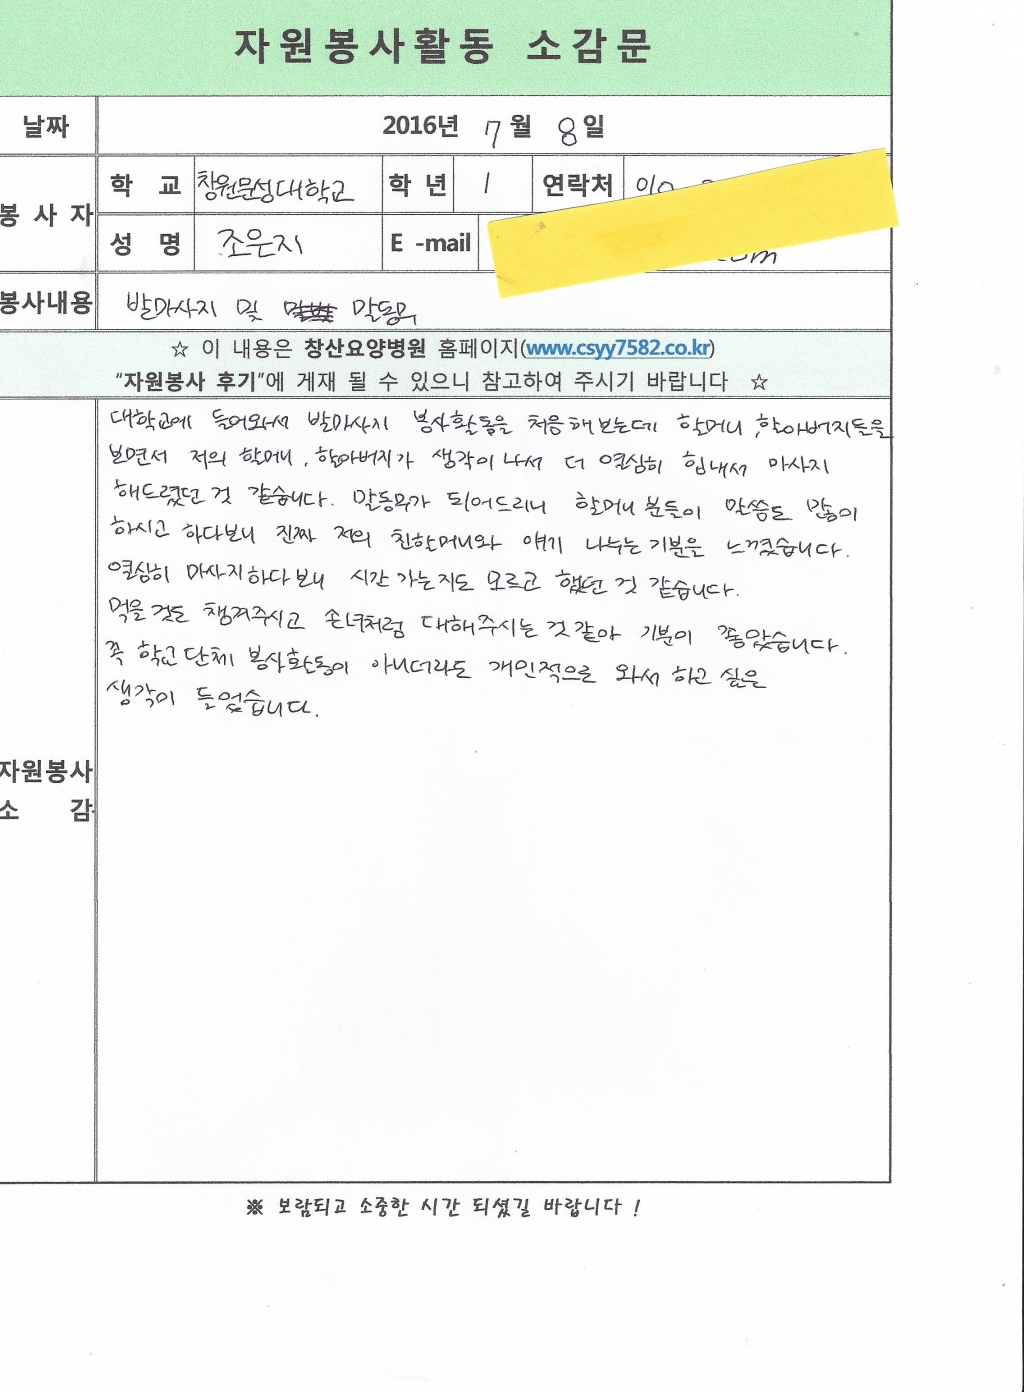 자원봉사활동 소감문
날짜 2016년 7월 8일
봉사자 학 교 창원문성대학교 학년 1 연락처 010
성 명 조은지 E-mail com
봉사내용 발마사지 및 말동무
☆ 이 내용은 창산요양병원 홈페이지(www.csyy7582.co.kr)
“자원봉사 후기”에 게재 될 수 있으니 참고하여 주시기 바랍니다 ☆
대학교에 들어와서 발마사지 봉사활동을 처음 해 보는데 할머니, 할아버지들을
보면서 저의 할머니, 할아버지가 생각이 나서 더 열심히 힘내서 마사지
해드렸던 것 같습니다. 말동무가 되어드리니 할머니 분들이 말씀도 많이
하시고 하다보니 진짜 저의 친할머니와 얘기 나누는 기분을 느꼈습니다.
열심히 마사지하다 보니 시간 가는지도 모르고 했던 것 같습니다.
먹을 것도 챙겨주시고 손녀처럼 대해주시는 것 같아 기분이 좋았습니다.
꼭 학교 단체 봉사활동이 아니더라도 개인적으로 와서 하고 싶은
생각이 들었습니다.
자원봉사
소 감
※ 보람되고 소중한 시간 되셨길 바랍니다 !